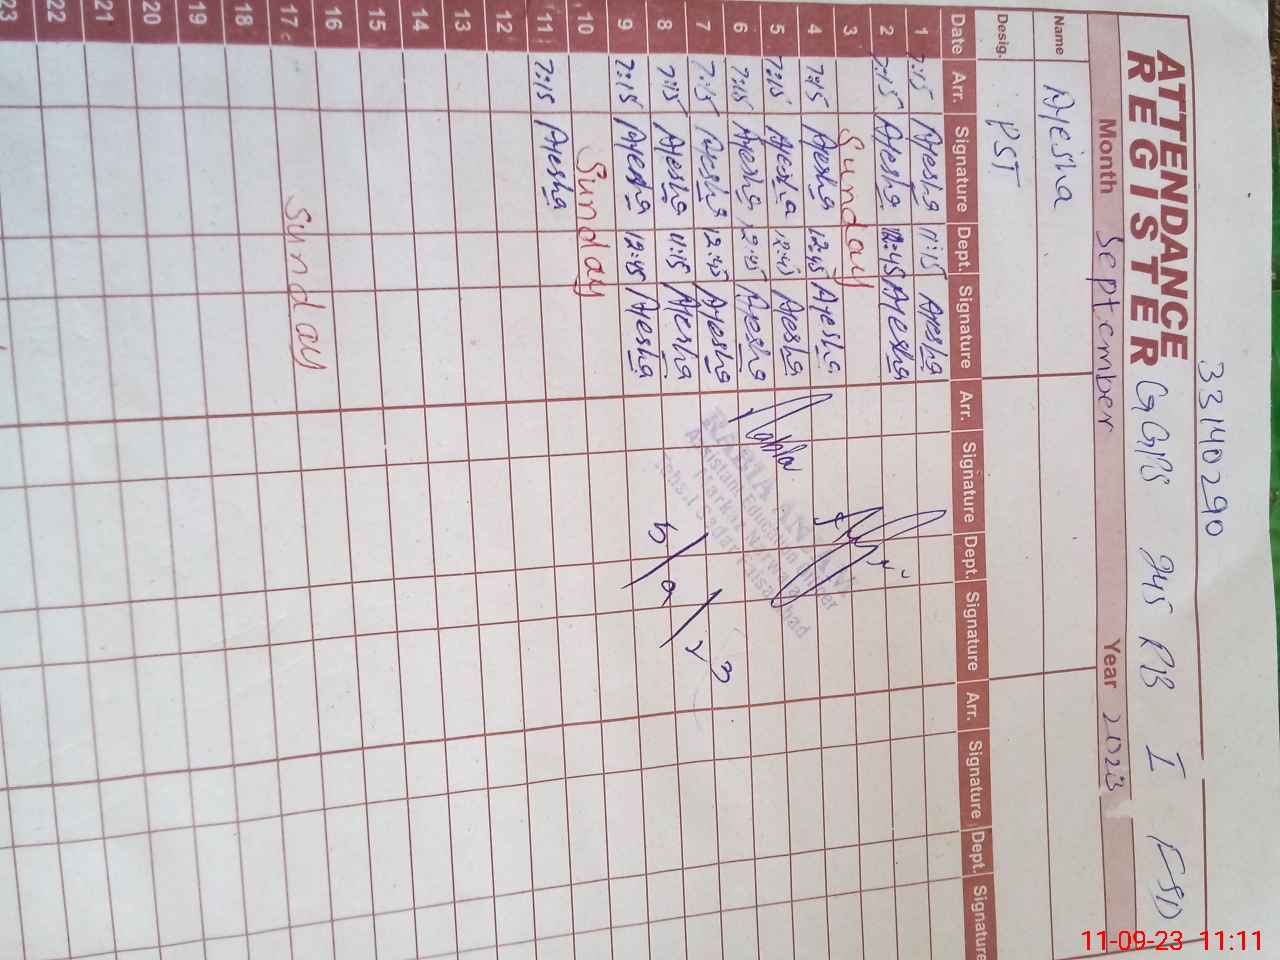 33140290
ATTENDANCE REGISTER GGPS 245 RB I FSD
Month September Year 2023
Name Ayesha
Desig. PST
Date Arr. Signature Dept. Signature Arr. Signature Dept. Signature Arr. Signature Dept. Signature
1 7:15 Ayesha 11:15 Ayesha
2 7:15 Ayesha 12:45 Ayesha
3 Sunday
4 7:15 Ayesha 12:45 Ayesha
5 7:15 Ayesha 12:45 Ayesha
6 7:15 Ayesha 12:45 Ayesha
7 7:15 Ayesha 12:45 Ayesha
8 7:15 Ayesha 11:15 Ayesha
9 7:15 Ayesha 12:45 Ayesha
10 Sunday
11 7:15 Ayesha
12
13
14
15
16
17 Sunday
18
19
20
21
22
23
Assistant Education Officer
Markaz
Tehsil Sadar Faisalabad
5/9/23
11-09-23 11:11